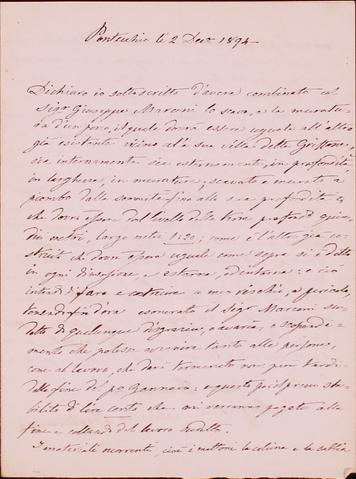 Pontecchio li 2 Decr 1894
Dichiaro io sottoscritto d'avere combinato col
Sigr Giuseppe Marconi lo scavo, e la muratu
ra d'un pozzo, il quale dovrà essere uguale all'altro
già esistente vicino alla sua villa detta Griffone,
sia internamente sia esternamente, in profondità
in larghezza, in muratura; scavato e murato a
piombo dalla sommità fino alla sua profondità
che dovrà essere dal livello della terra
metri, largo metri 1.20; come è l'altro già
costruito che dovrà essere uguale come sopra si è detto
in ogni dimensione, e esterna, e interna: e ciò
intendo di fare e costruire a mio rischio, e pericolo,
tenendo fin d'ora esonerato il Sigr Marconi sud
detto di qualunque disgrazia, avaria, o
mento che potesse avvenire tanto alle persone,
come al lavoro, che darò terminato non più tardi
della fine di po Gennaio, e questo pel prezzo sta
bilito di lire cento che mi verranno pagate alla
fine e collaudo del lavoro suddetto.
I materiali occorrenti, cioè i mattoni la calcina e la sabbia